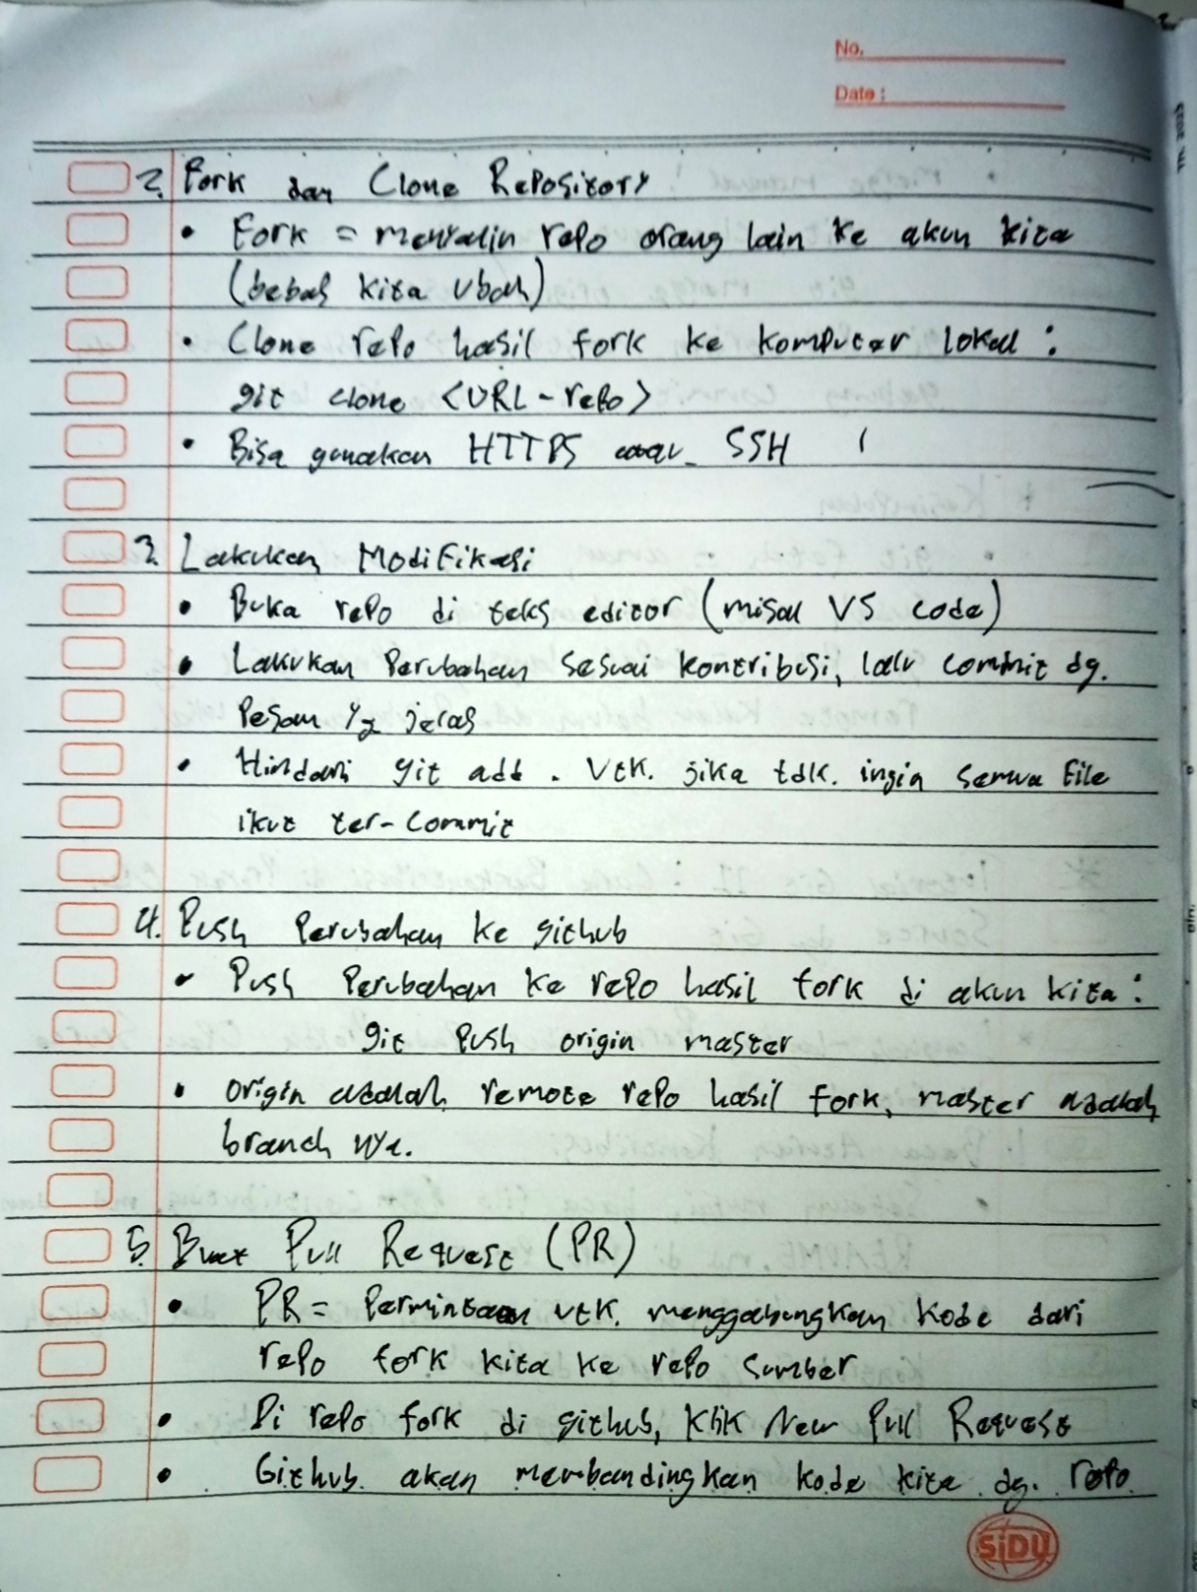 No.
Date :
2. Fork dan Clone Repository
• Fork = menyalin repo orang lain ke akun kita
(bebas kita ubah)
• Clone repo hasil fork ke komputer lokal :
git clone <URL-repo>
• Bisa gunakan HTTPS atau SSH
3. Lakukan Modifikasi
• Buka repo di teks editor (misal VS Code)
• Lakukan Perubahan sesuai kontribusi, lalu commit dg.
Pesan yg jelas
• Hindari git add . Utk. jika tdk. ingin semua file
ikut ter-commit
4. Push Perubahan ke github
• Push Perubahan ke repo hasil fork di akun kita :
git push origin master
• origin adalah remote repo hasil fork, master adalah
branch nya.
5. Buat Pull Request (PR)
• PR = Permintaan utk. menggabungkan kode dari
repo fork kita ke repo sumber
• Di repo fork di github, klik New Pull Request
• Github akan membandingkan kode kita dg. repo
SiDU